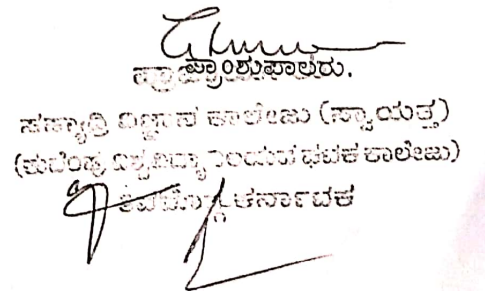 ಪ್ರಾಂಶುಪಾಲರು.
ಸಹ್ಯಾದ್ರಿ ವಿಜ್ಞಾನ ಕಾಲೇಜು (ಸ್ವಾಯತ್ತ)
(ಕುವೆಂಪು ವಿಶ್ವವಿದ್ಯಾಲಯದ ಘಟಕ ಕಾಲೇಜು)
ಶಿವಮೊಗ್ಗ, ಕರ್ನಾಟಕ